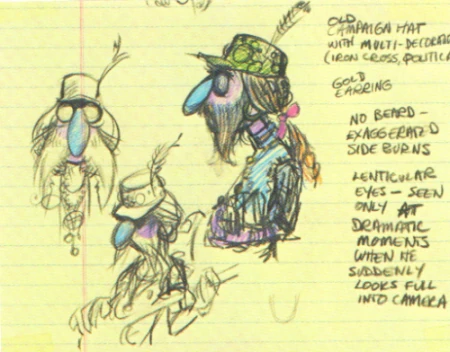 OLD
CAMPAIGN HAT
WITH MULTI-DECORAT
(IRON CROSS, POLITICA
GOLD
EARRING
NO BEARD -
EXAGGERATED
SIDE BURNS
LENTICULAR
EYES - SEEN
ONLY AT
DRAMATIC
MOMENTS
WHEN HE
SUDDENLY
LOOKS FULL
INTO CAMERA